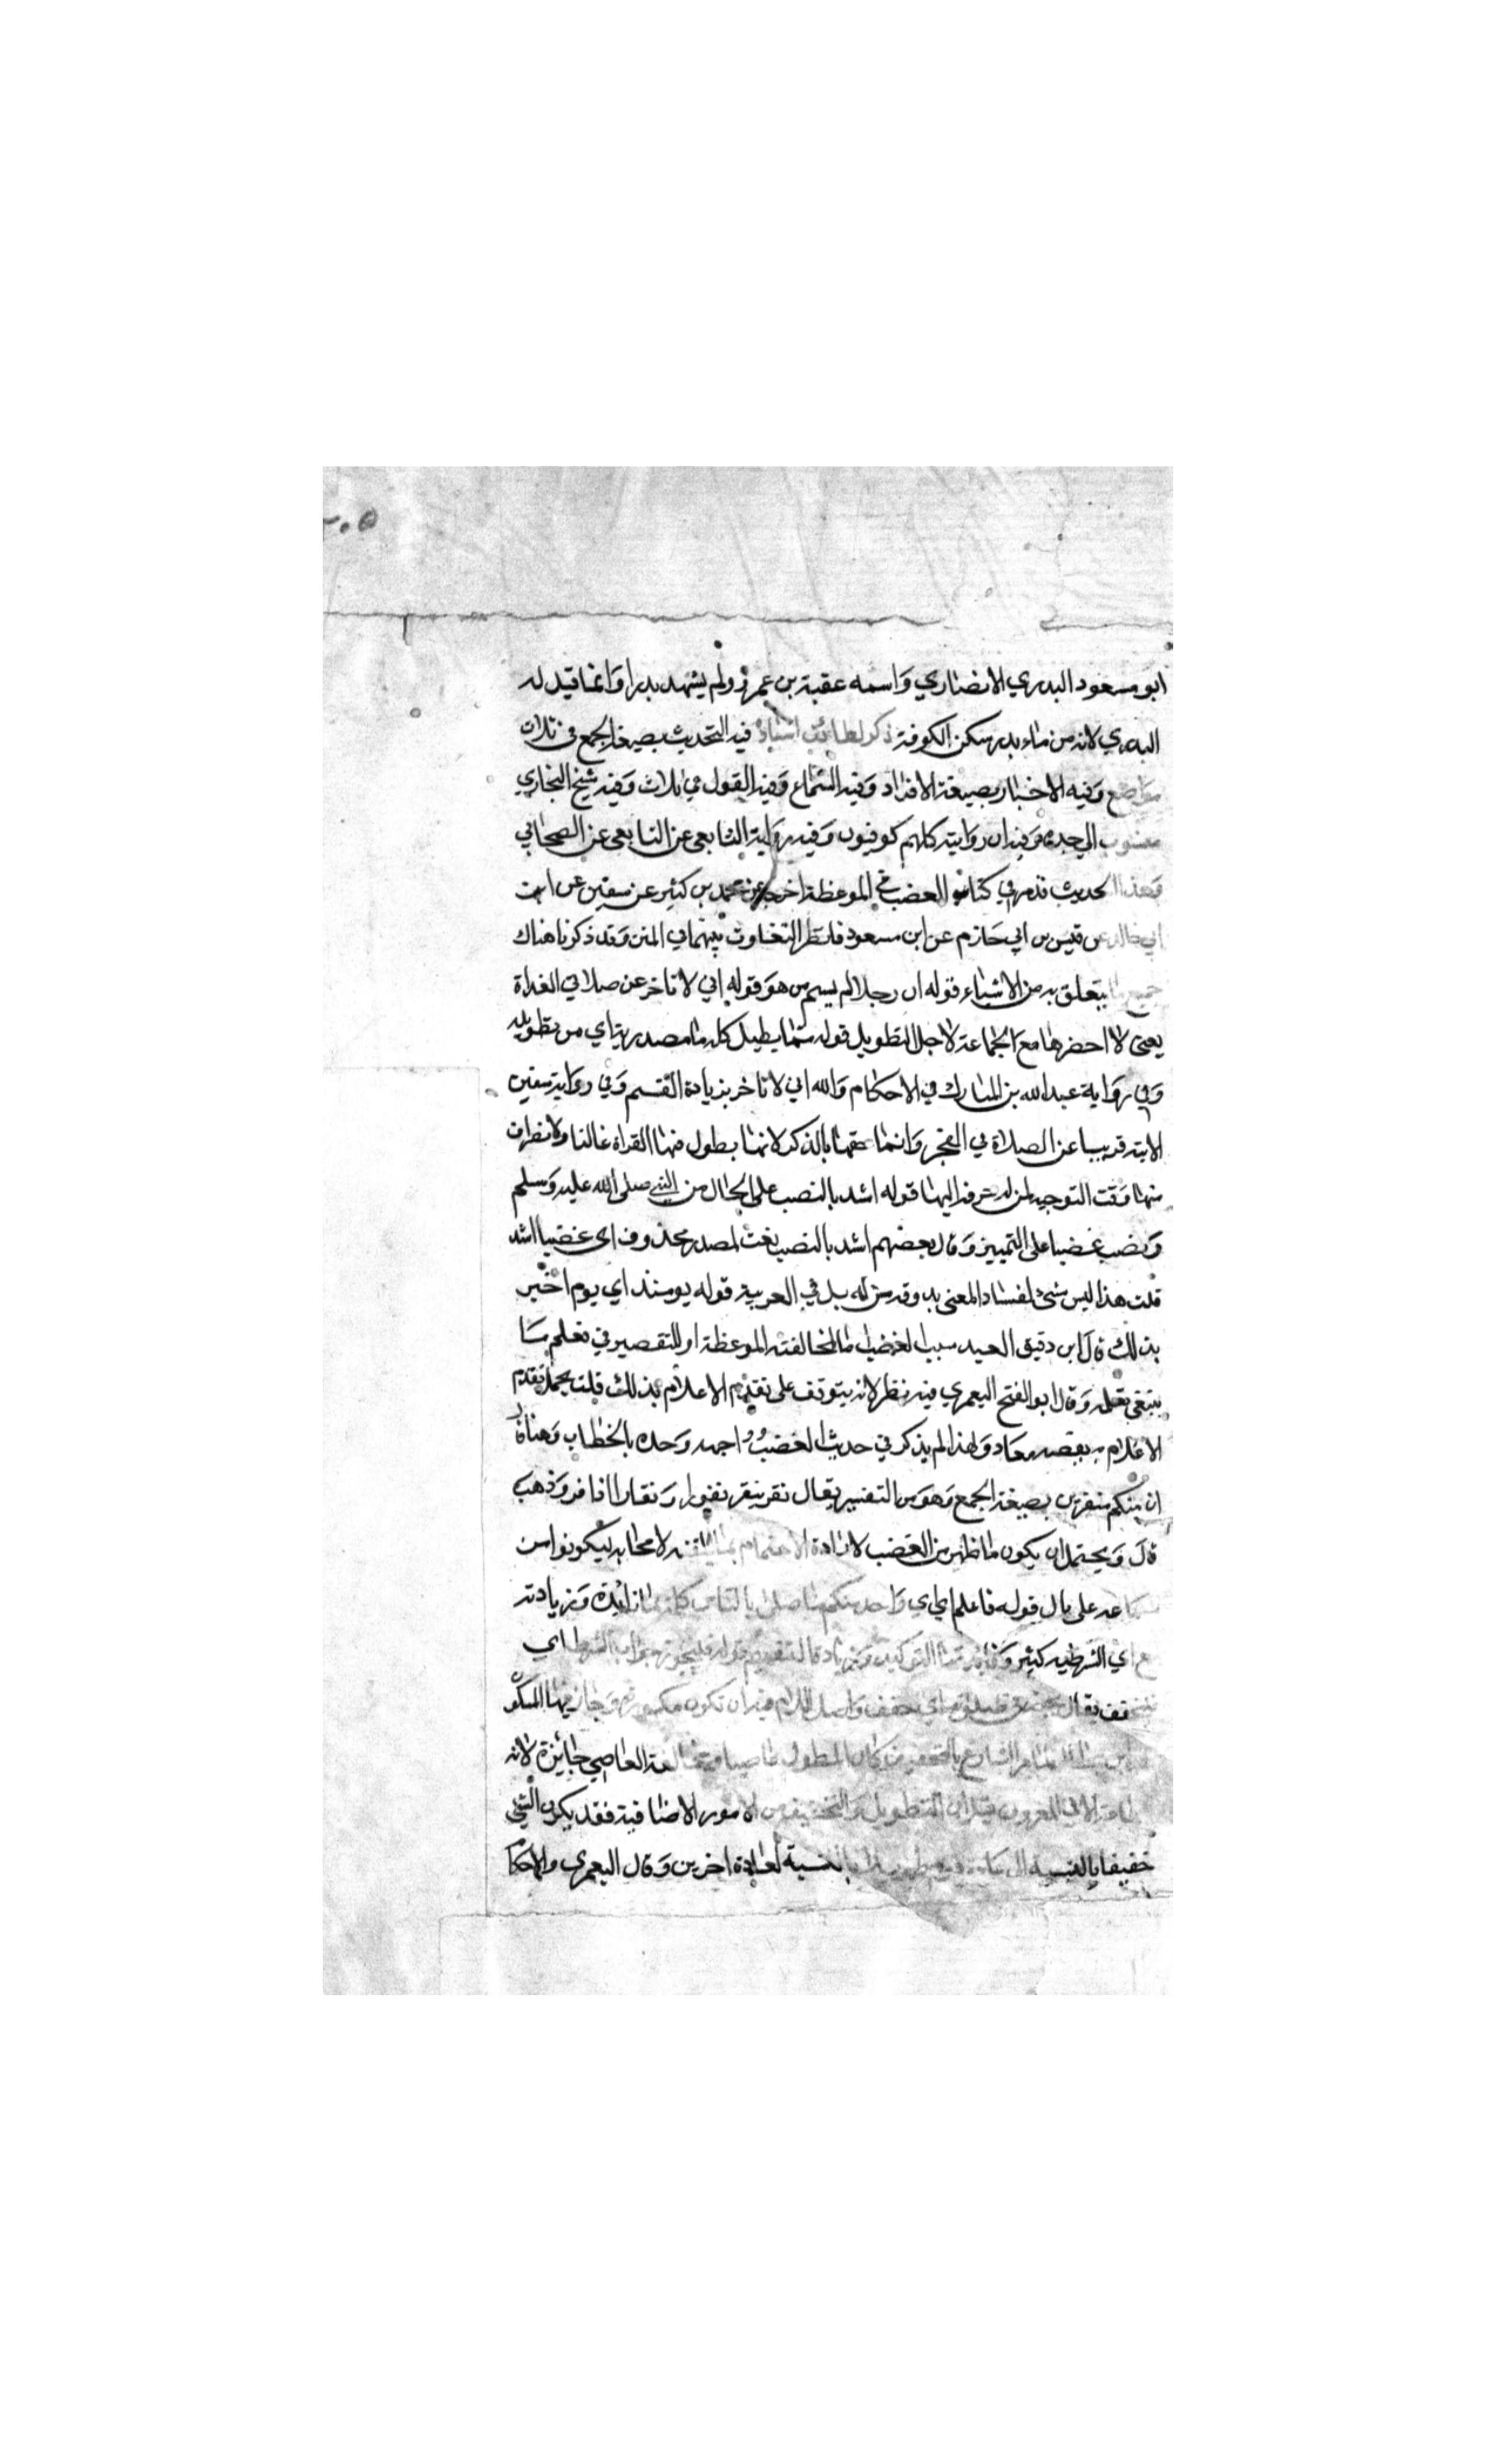 ٣٠٥
ابو مسعود البدري الانصاري واسمه عقبة بن عمرو ولم يشهد بدرا وانما قيل له
البدري لانه من ماء بدر سكن الكوفة ذكر لطائف اسناده فيه التحديث بصيغة الجمع في ثلاث
مواضع وفيه الاخبار بصيغة الافراد وفيه السماع وفيه القول في ثلاث وفيه شيخ البخاري
منسوب الي جده وفيه ان رواته كلهم كوفيون وفيه رواية التابعي عن التابعي عن الصحابي
وهذا الحديث قد مر في كتاب الغضب في الموعظة اخرجه عن محمد بن كثير عن سفين عن ابن
ابي خالد عن قيس بن ابي حازم عن ابن مسعود فانظر التفاوت بينهما في المتن وقد ذكرنا هناك
جميع ما يتعلق به من الاشياء قوله ان رجلا لم يسم من هو قوله اني لاتاخر عن صلاتي الغداة
يعني لا احضرها مع الجماعة لاجل التطويل قوله مما يطيل كلمة ما مصدرية اي من تطويله
وفي رواية عبد الله بن المبارك في الاحكام والله اني لاتاخر بزيادة القسم وفي رواية سفين
الاتية قريبا عن الصلاة في الفجر وانما خصها بالذكر لانها يطول فيها القراة غالبا ولانصراف
منها وقت التوجه لمن له حرفة اليها قوله اشد بالنصب على الحال من النبي صلى الله عليه وسلم
ونصب غضبا على التمييز وقال بعضهم اشد بالنصب نعت لمصدر محذوف اي غضبا اشد
قلت هذا ليس بشئ لفساد المعنى به وقد من له بل في العربية قوله يومئذ اي يوم اخبر
بذلك قال ابن دقيق العيد سبب الغضب اما لمخالفة الموعظة او للتقصير في تعلم ما
ينبغي تعلمه وقال ابو الفتح اليعمري فيه نظر لانه يتوقف على تقدم الاعلام بذلك قلت يحتمل تقدم
الاعلام به بقصة معاذ ولهذا لم يذكر في حديث الغضب وواجهه وحده بالخطاب وهنا قال
ان منكم منفرين بصيغة الجمع وهو من التنفير يقال نفر ينفر نفورا ونفارا اذا فر وذهب
قال ويحتمل ان يكون ما ظهر من الغضب لارادة الاهتمام بما يلقيه لاصحابه ليكونوا من
سماعه على بال قوله فايكم اي اي واحد منكم ما صلى بالناس كلمة ما زائدة وزيادته
مع اي الشرطية كثير وفائدتها التوكيد وزيادة التعميم قوله فليتجوز جواب الشرط اي
فليخفف يقال تجوز في صلوته اي خفف واصل اللام فيه ان تكون مكسورة وجاز فيها السكون
ابن بطال لما امر الشارع بالتخفيف كان المطول عاصيا ومخالفة العاصي جائزة لانه
لا طاعة الا في المعروف قيل ان التطويل والتخفيف من الامور الاضافية فقد يكون الشي
خفيفا بالنسبة الى عادة قوم طويلا بالنسبة لعادة اخرين وقال اليعمري والاحكام